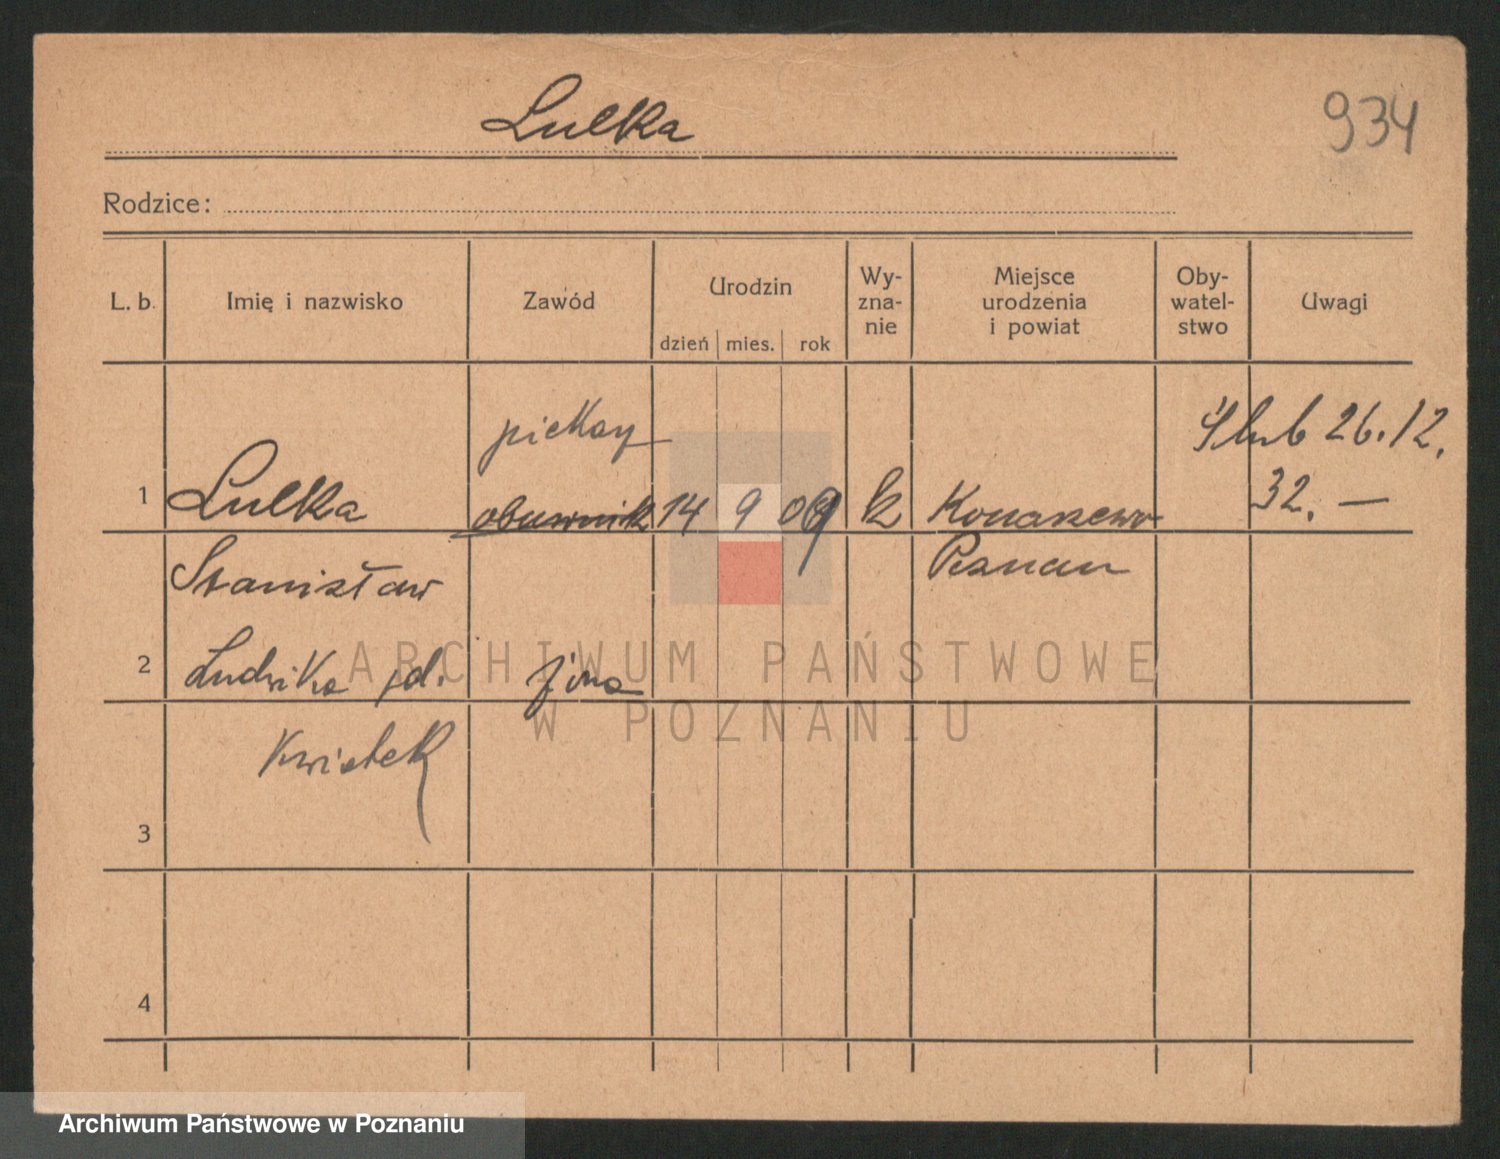 Lulka
934
Rodzice:
L. b.
Imię i nazwisko
Zawód
Urodzin
dzień mies. rok
Wy-
zna-
nie
Miejsce
urodzenia
i powiat
Oby-
watel-
stwo
Uwagi
piekarz
Ślub 26.12.
32. —
1 Lulka obuwnik 14 9 09 k Konarzewo
Stanisław Poznań
2 Ludwika jd. żona
Kwiatek
3
4
ARCHIWUM PAŃSTWOWE
W POZNANIU
Archiwum Państwowe w Poznaniu